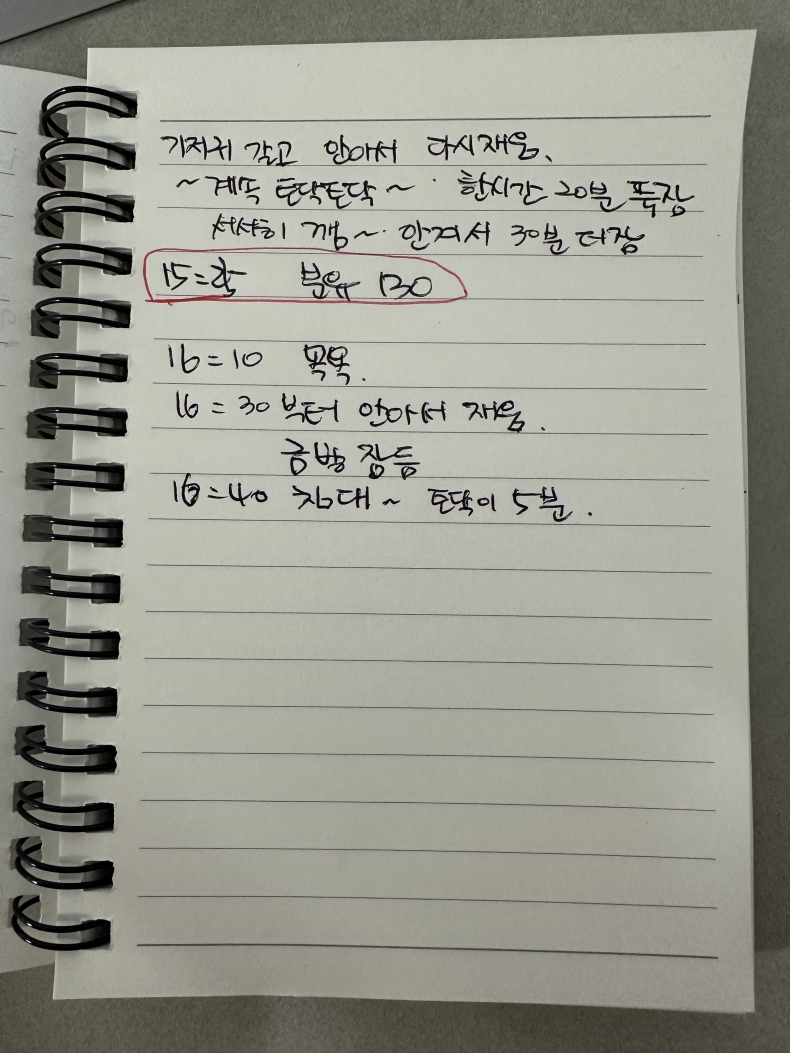 기저귀 갈고 안아서 다시재움.
~계속 토닥토닥~ 한시간 20분 푹잠
서서히 깸~ 안겨서 30분 더잠
15= 분유 130
16=10 목욕.
16=30부터 안아서 재움.
금방 잠듬
16=40 침대~ 토닥이 5분.